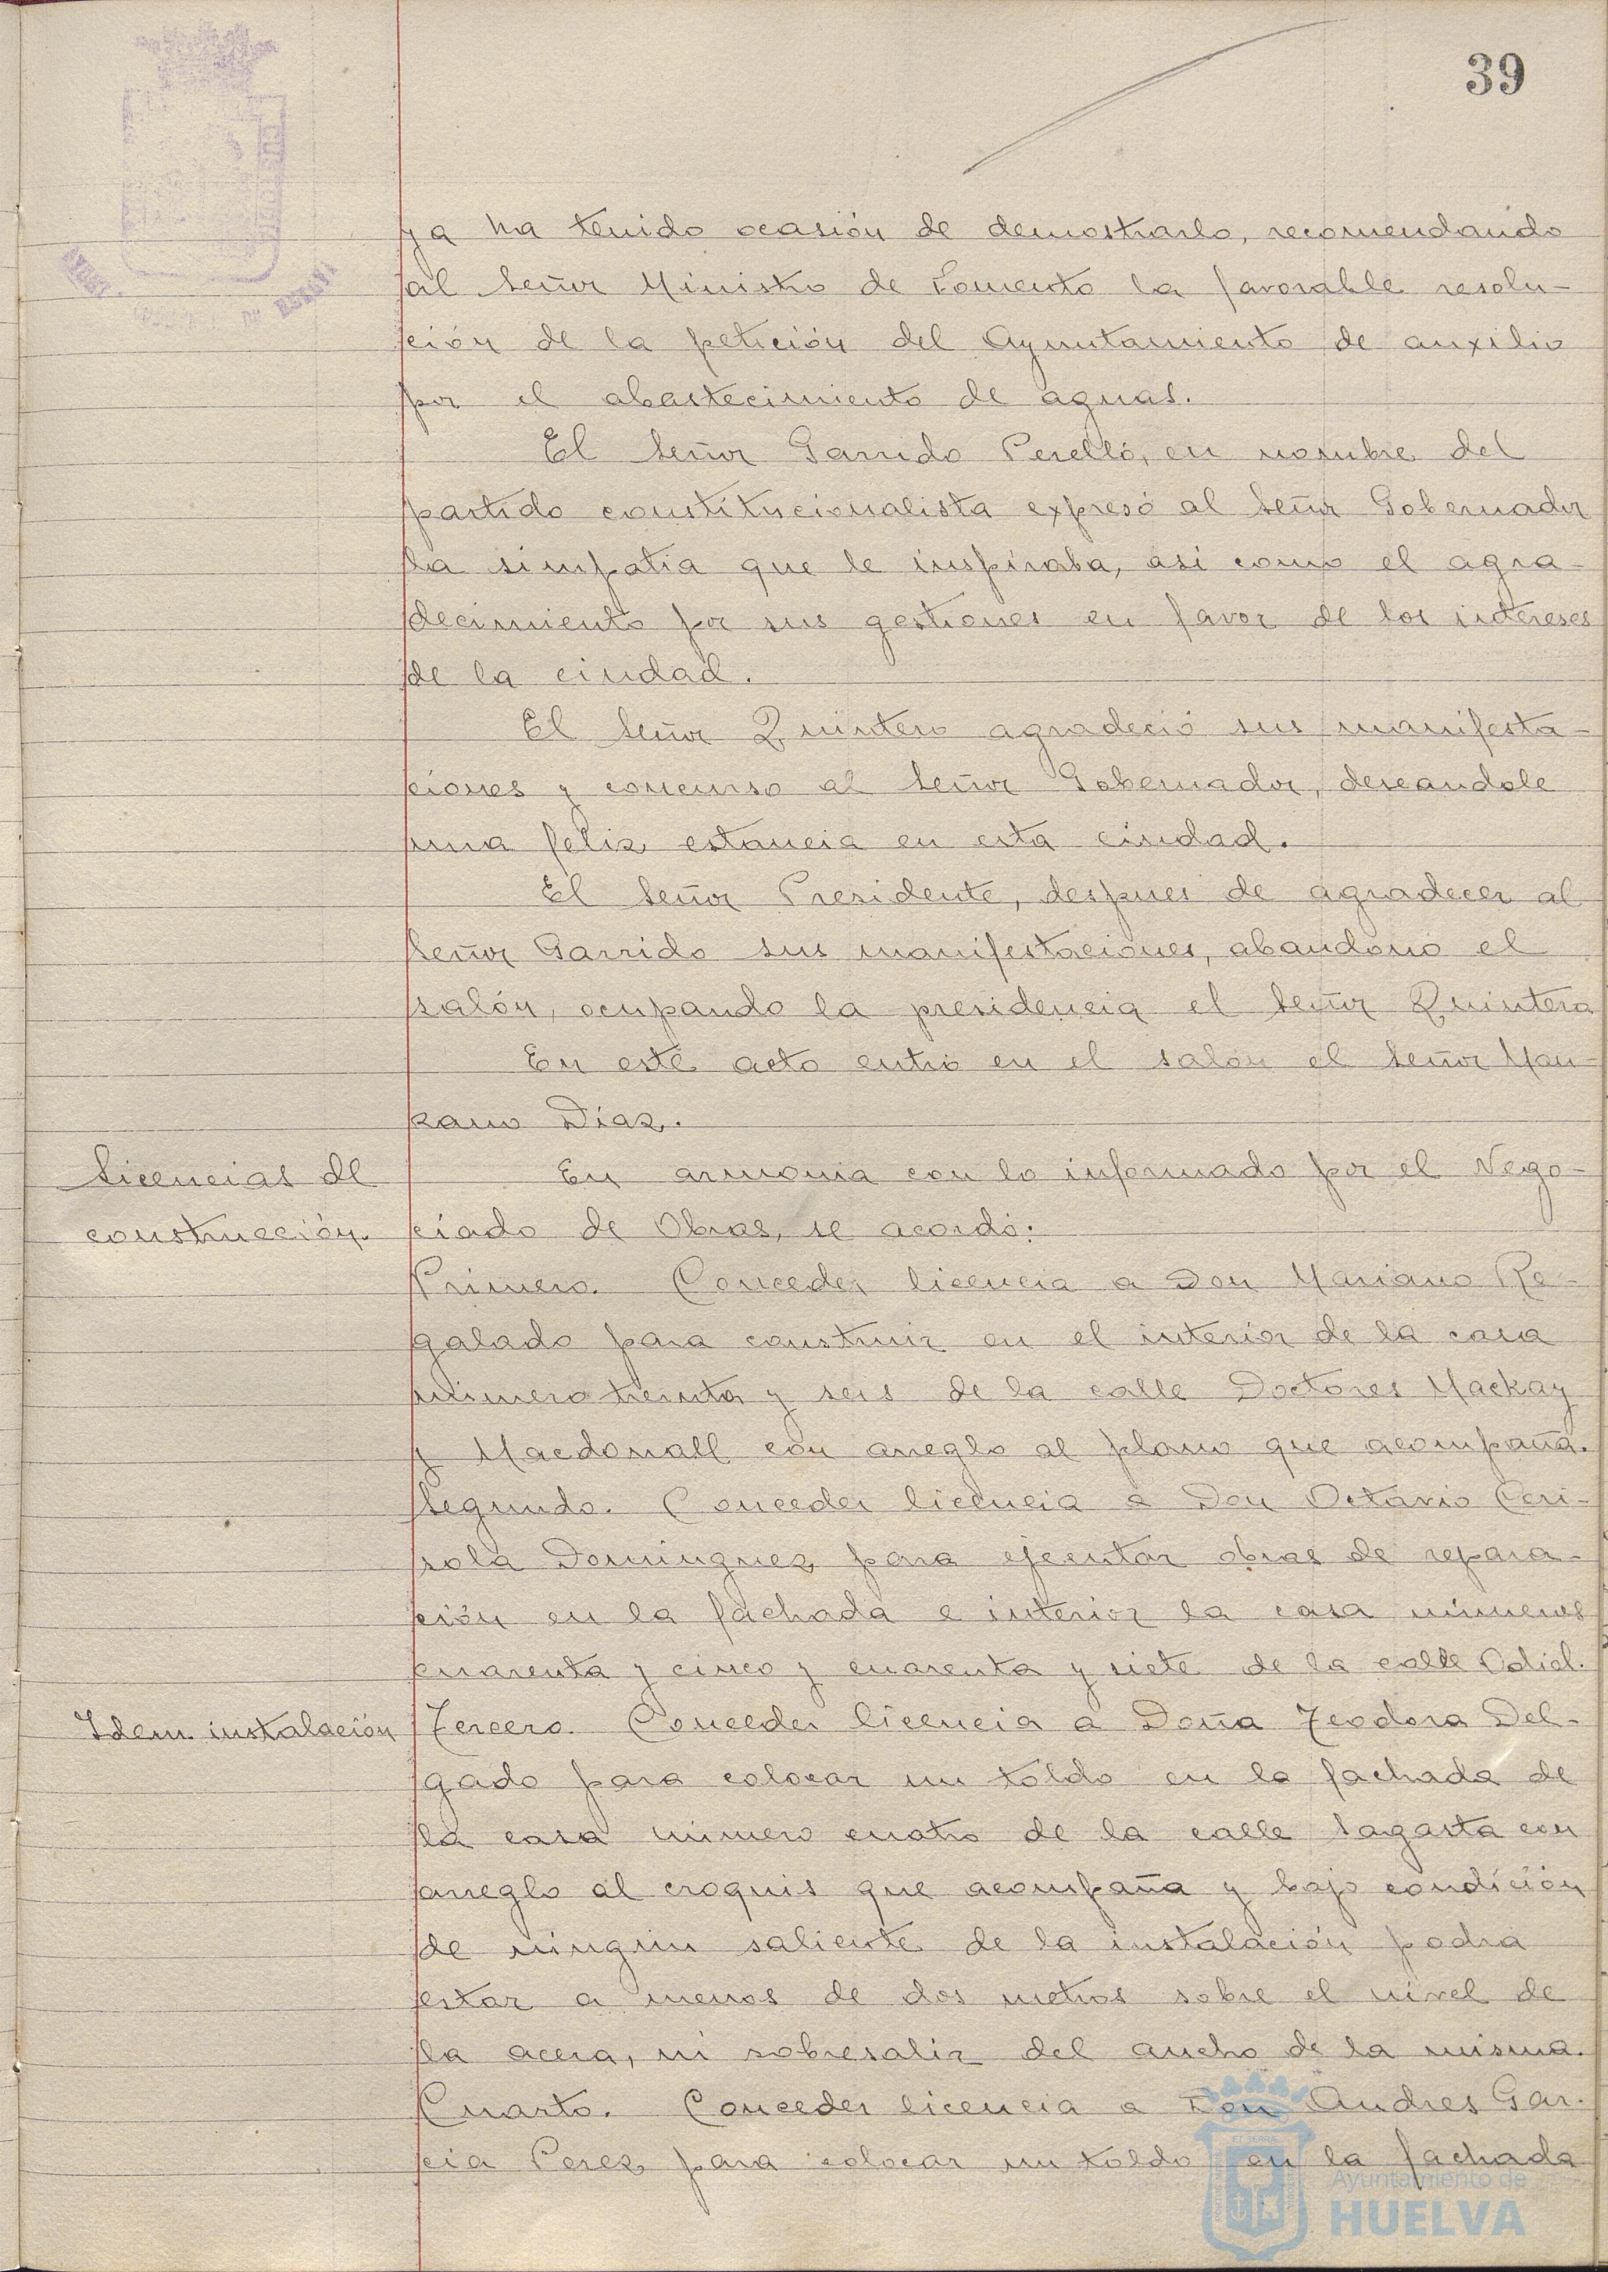 39
ya ha tenido ocasión de demostrarlo, recomendando
al Señor Ministro de Fomento la favorable resolu-
ción de la petición del Ayuntamiento de auxilio
por el abastecimiento de aguas.
El Señor Garrido Perelló, en nombre del
partido constitucionalista expresó al Señor Gobernador
la simpatia que le inspiraba, asi como el agra-
decimiento por sus gestiones en favor de los intereses
de la ciudad.
El Señor Quintero agradeció sus manifesta-
ciones y concurso al Señor Gobernador, deseandole
una feliz estancia en esta ciudad.
El Señor Presidente, despues de agradecer al
Señor Garrido sus manifestaciones, abandonó el
salón, ocupando la presidencia el Señor Quintero
En este acto entró en el salón el Señor Man-
zano Díaz.
Licencias de
construcción.
En armonia con lo informado por el Nego-
ciado de Obras, se acordó:
Primero. Conceder licencia a Don Mariano Re-
galado para construir en el interior de la casa
número treinta y seis de la calle Doctores Mackay
y Macdonall con arreglo al plano que acompaña.
Segundo. Conceder licencia a Don Octavio Ceri-
sola Dominguez para ejecutar obras de repara-
ción en la fachada e interior la casa números
cuarenta y cinco y cuarenta y siete de la calle Odiel.
Idem. instalación
Tercero. Conceder licencia a Doña Teodora Del-
gado para colocar un toldo en la fachada de
la casa número cuatro de la calle Sagasta con
arreglo al croquis que acompaña y bajo condición
de ningún saliente de la instalación podra
estar a menos de dos metros sobre el nivel de
la acera, ni sobresalir del ancho de la misma.
Cuarto. Conceder licencia a Don Andres Gar-
cia Perez para colocar un toldo en la fachada
Ayuntamiento de
HUELVA